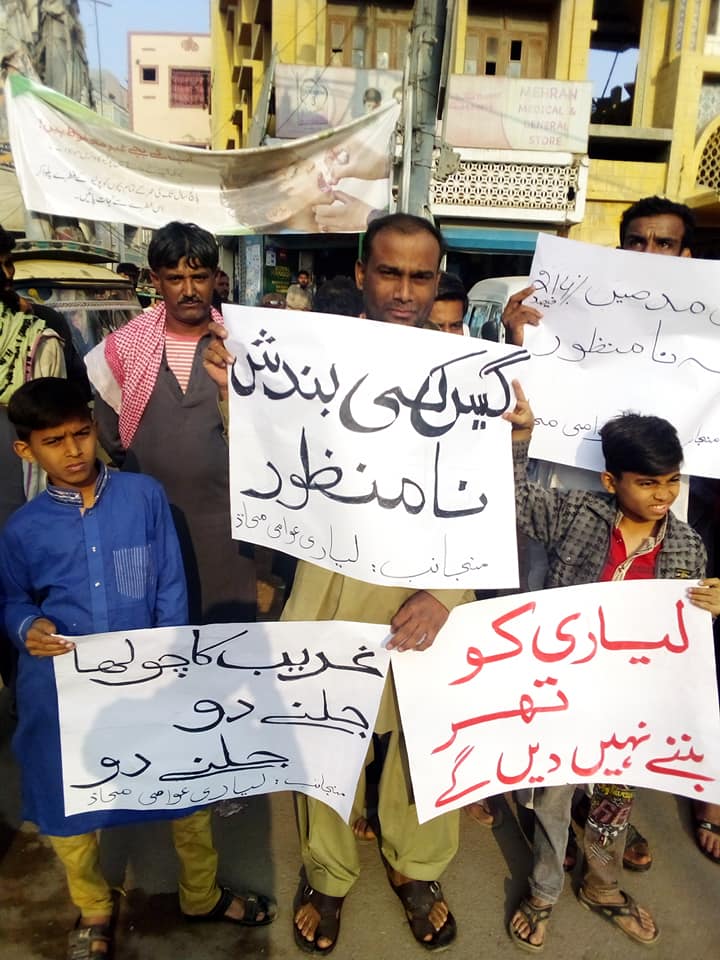 MEHRAN
MEDICAL &
GENERAL
STORE
مد میں
نا منظور
گیس کی بندش
نامنظور
منجانب: لیاری عوامی محاذ
غریب کا چولھا
جلنے دو
جلنے دو
منجانب: لیاری عوامی محاذ
لیاری کو
تھر
بننے نہیں دیں گے